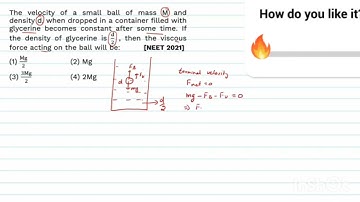 The velocity of a small ball of mass M and
density d when dropped in a container filled with
glycerine becomes constant after some time. If
the density of glycerine is d/2, then the viscous
force acting on the ball will be: [NEET 2021]
(1) Mg/2 (2) Mg
(3) 3Mg/2 (4) 2Mg
How do you like it?
FB
Fv
d
mg
d/2
terminal velocity
Fnet = 0
mg - FB - Fv = 0
⇒ F